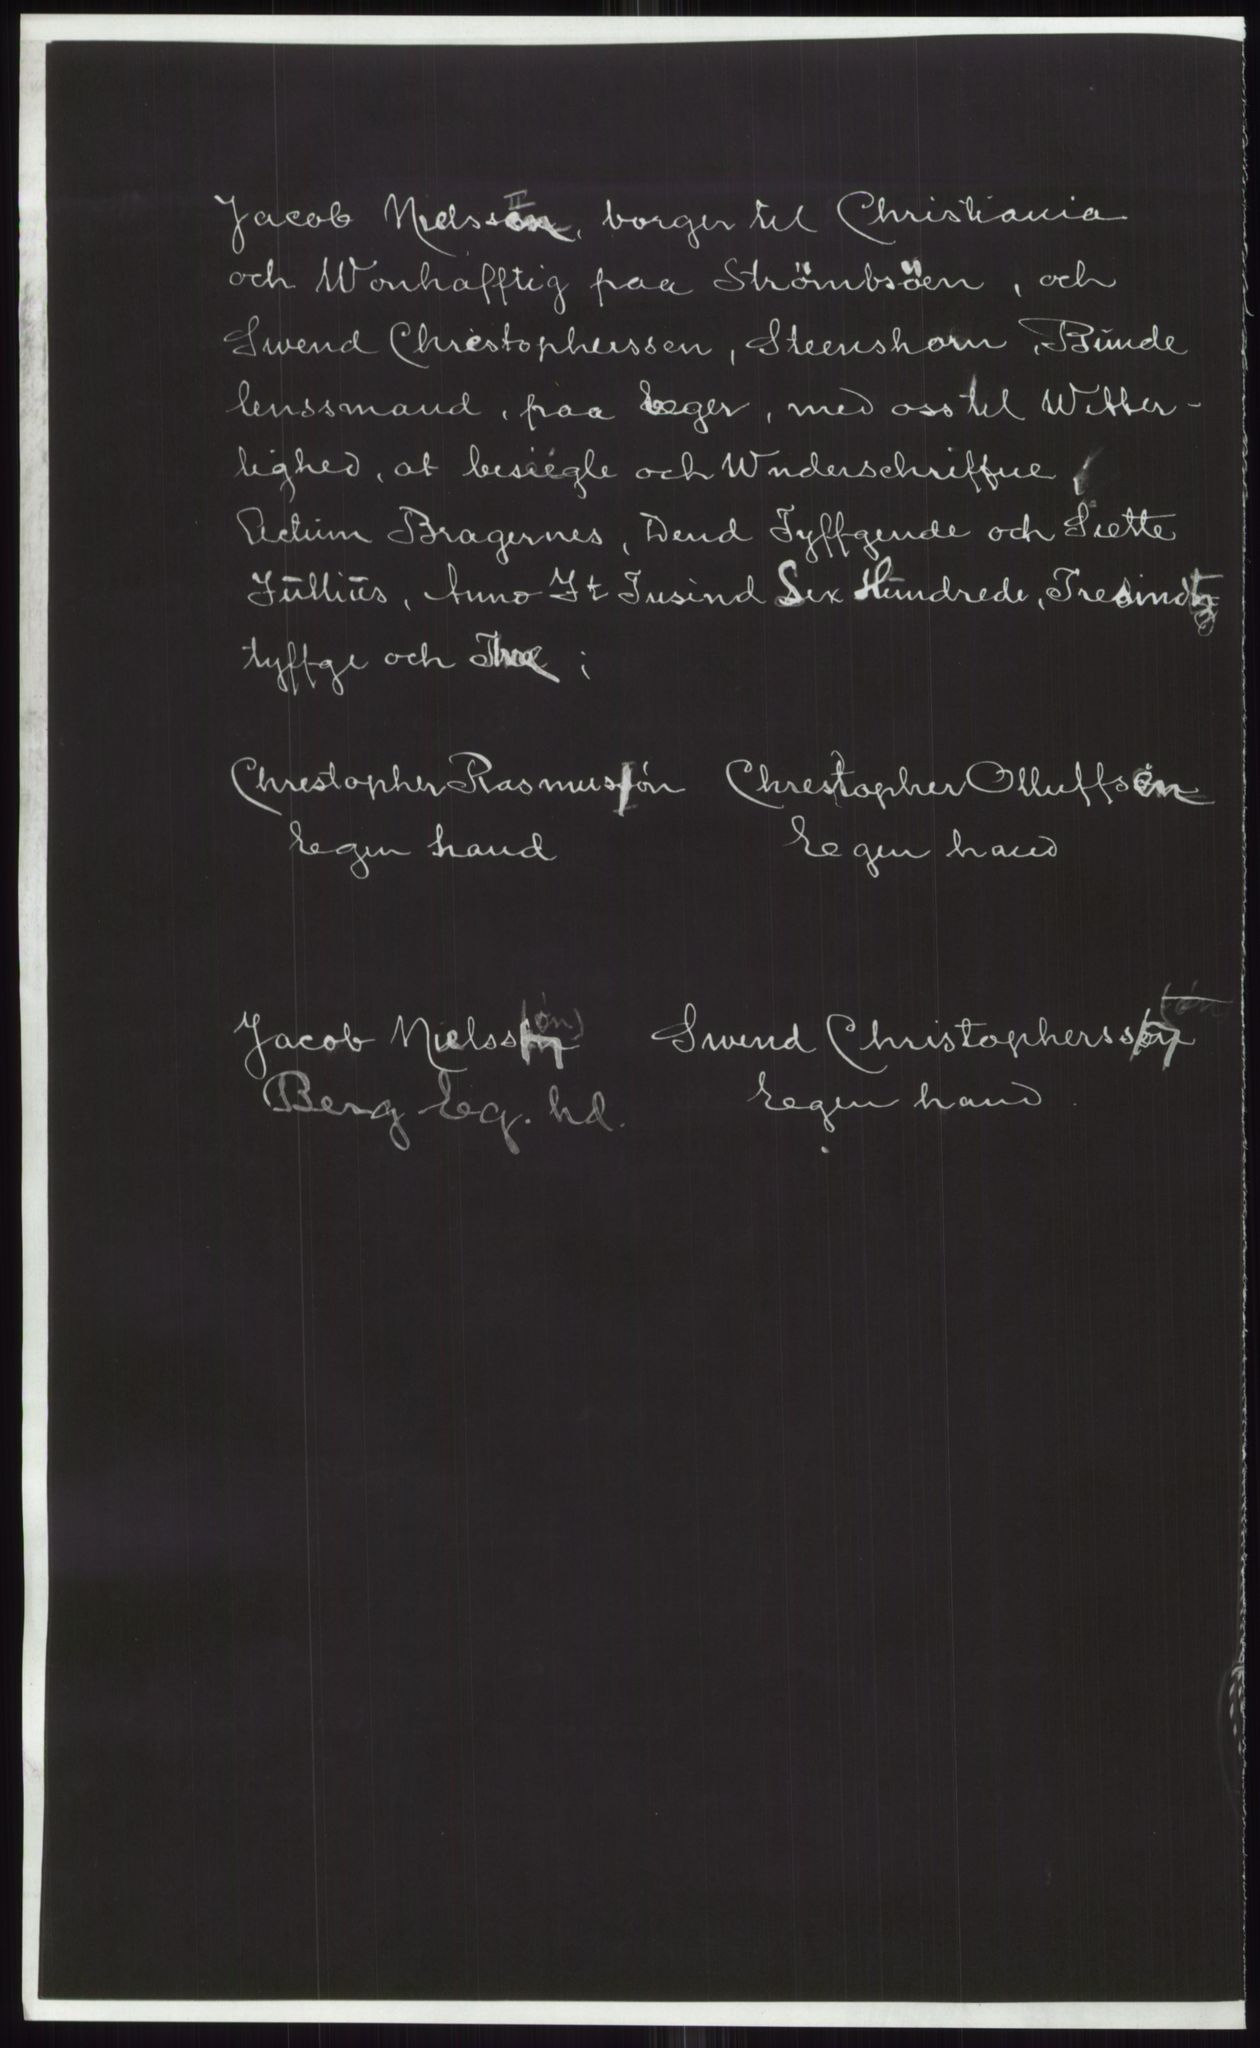 Jacob Nielssøn, borger til Christiania
och Wonhafftig paa Strömbsöen, och
Swend Christopherssen, Steenshorn, Bünde
lenssmand, paa Eeger, med oss til Witter-
lighed, at besiegle och Wnderschriffue,
Actüm Bragernes, Dend Tyffgende och Siette
Jüllius, Anno It Tusind Sex Hundrede, Tresindtz
tyffge och Thre;
Chrestopher Rasmussøn Chrestopher Olluffsøn
Eegen hand Eegen hand
Jacob Nielss (øn) Swend Christopherssøn (øn
Berg Eeg. hd. Eegen hand